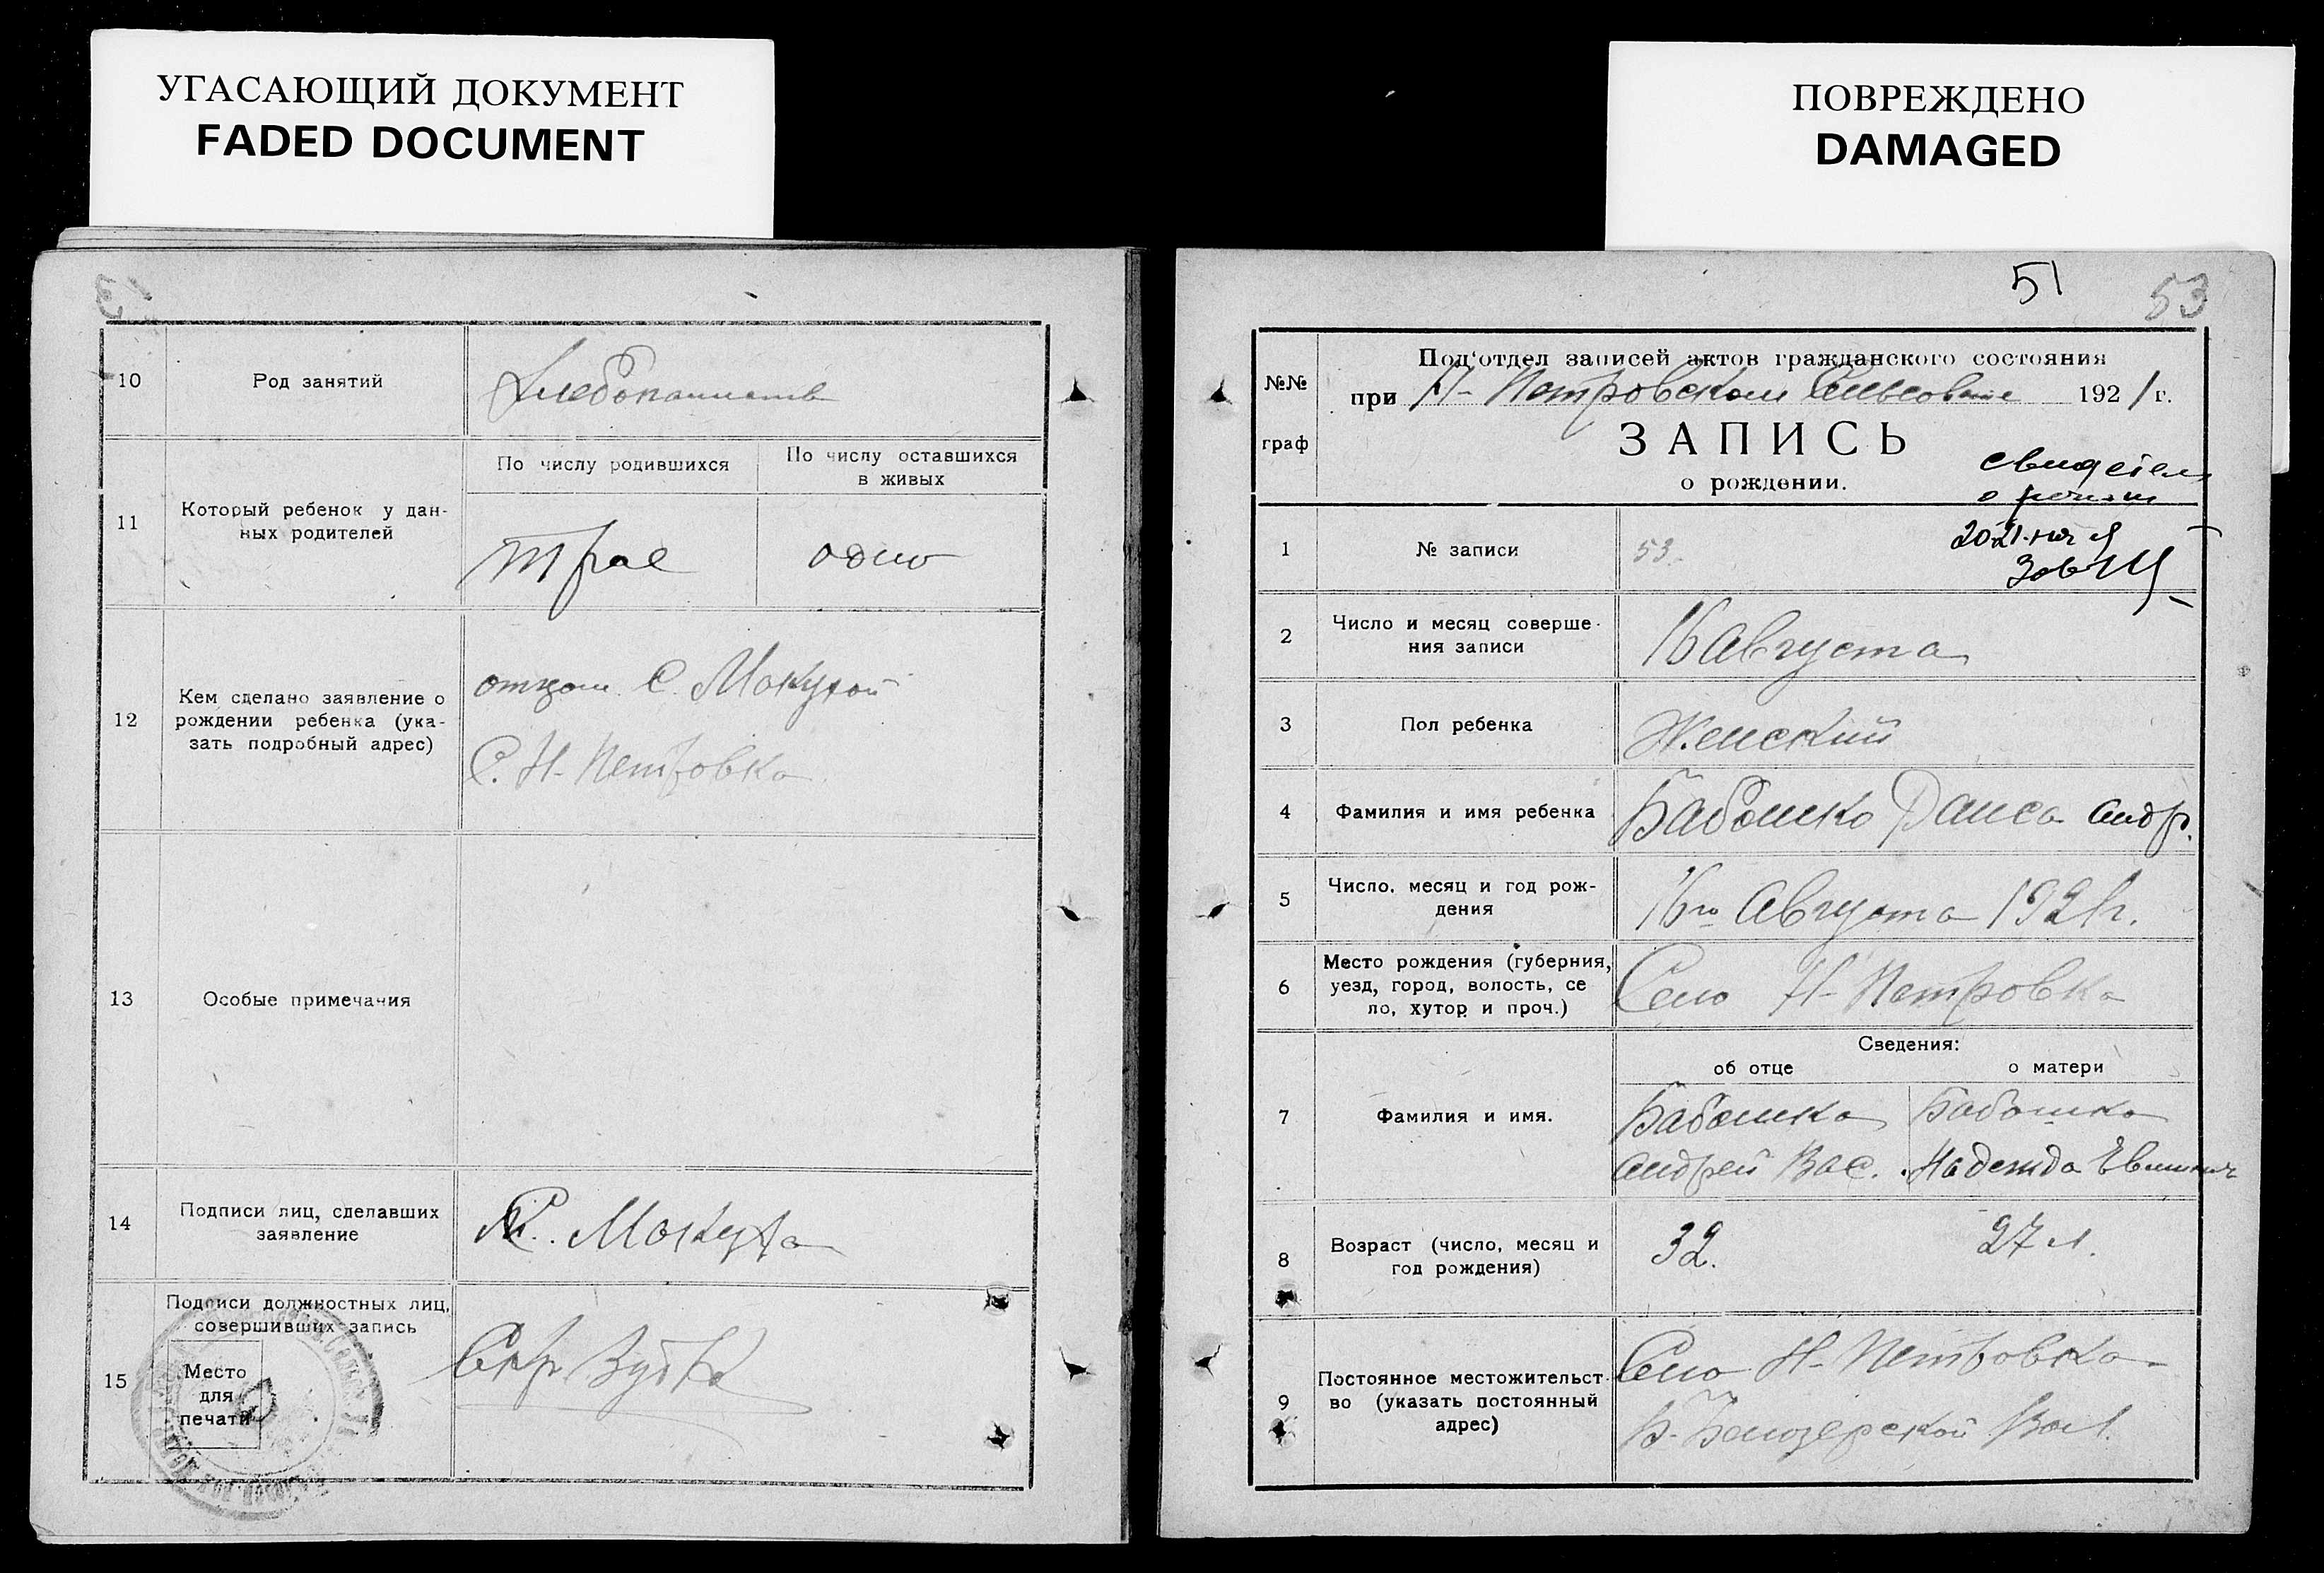 УГАСАЮЩИЙ ДОКУМЕНТ
FADED DOCUMENT
ПОВРЕЖДЕНО
DAMAGED
10
Род занятий
Хлебопашеств
11
Который ребенок у дан-
ных родителей
По числу родившихся
По числу оставшихся
в живых
трое
одно
12
Кем сделано заявление о
рождении ребенка (ука-
зать подробный адрес)
отцом С. Мокухой
С. Н-Петровка
13
Особые примечания
14
Подписи лиц, сделавших
заявление
С. Мокуха
15
Подписи должностных лиц,
совершивших запись
Место
для
печати
51
53
№№
граф
Под'отдел записей актов гражданского состояния
при Н-Петровском Сельсовете 1921 г.
ЗАПИСЬ
о рождении.
1
№ записи
53.
2
Число и месяц соверше-
ния записи
16 Августа
3
Пол ребенка
Женский
4
Фамилия и имя ребенка
Бабошко Раиса Андр.
5
Число, месяц и год рож-
дения
16го Августа 1921 г.
6
Место рождения (губерния,
уезд, город, волость, се
ло, хутор и проч.)
Село Н-Петровка
Сведения:
об отце
о матери
7
Фамилия и имя.
Бабошко
Андрей Вас.
Бабошко
Надежда
8
Возраст (число, месяц и
год рождения)
32.
27 л.
9
Постоянное местожительст-
во (указать постоянный
адрес)
Село Н-Петровка
Б-Белозерской Вол.